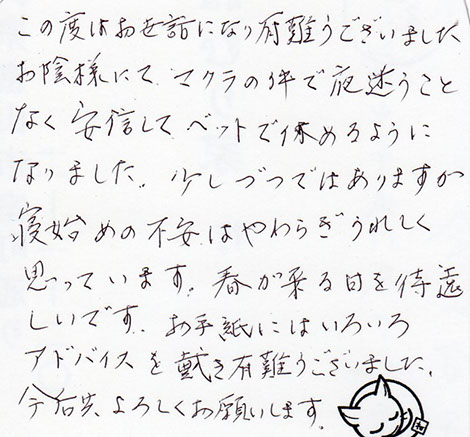 この度はお世話になり有難うございました
お陰様にて、マクラの件で夜迷うこと
なく安信してベットで休めるように
なりました。少しづつではありますが
寝始めの不安はやわらぎうれしく
思っています。春が来る日を待遠
しいです。お手紙にはいろいろ
アドバイスを戴き有難うございました。
今后共よろしくお願いします。